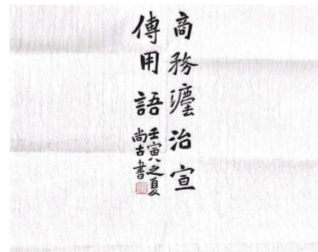 商務瘞治宣
傳用語
壬寅八之夏
尚古書